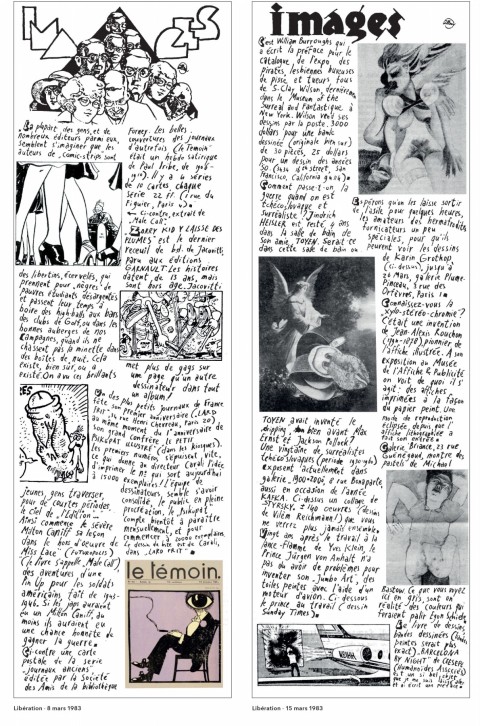 IMAGES
La plupart des gens, et de
nombreux éditeurs parmi eux,
semblent s'imaginer que les
auteurs de comic-strips sont
des libertins, écervelés, qui
prennent pour "nègres" de
pauvres étudiants désargentés
et passent leur temps à
boire des highballs aux bars
des clubs de Golf, ou dans les
bonnes auberges de nos
campagnes, quand ils ne
chassent pas la minette dans
des boîtes de nuit. Cela
existe, bien sûr, ou a
existé. On a vu ces brillants
jeunes gens traverser,
pour de courtes périodes,
le ciel de
Ainsi commence le sévère
Milton Caniff sa leçon
dans le hors d'œuvre de
"Miss Lace" (Futuropolis)
(le livre s'appelle "Male Call")
des aventures d'une
Pin Up pour les soldats
américains, fait de 1943-
1946. Si les japs auraient
eu un Milton Caniff, au
moins ils auraient eu
une chance honnête de
gagner la guerre.
Ci-contre une carte
postale de la série
"journaux anciens"
éditée par la Société
des Amis de la bibliothèque
Forney. Les belles
couvertures de journaux
d'autrefois (le Témoin
était un hebdo satirique
de Paul Iribe, de
Il y a 6 séries
de 10 cartes, chaque
série 22 Fr (1 rue du
Figuier, Paris 4).
← Ci-contre, extrait de
"Male Call"
est le dernier
recueil de bd. de Jacovitti,
paru aux éditions
GARNAULT. Les histoires
datent de 13 ans, mais
sont hors âge. Jacovitti
met plus de gags sur
une page qu'un autre
dessinateur dans tout
un album.
Un des plus petits journaux de France
fête son premier anniversaire (LARD
FRIT, 10 rue Henri Cheneau, Paris 12)
au même moment où
son grand confrère LE PETIT
PSIKOPAT ILLUSTRÉ (dans les kiosques).
Les premiers numéros s'épuisent vite,
ce qui donne au directeur Carali l'idée
d'imprimer le
à 15000 exemplaires! L'équipe de
dessinateurs, semble s'avoir
consolidé, le public en pleine
procréation, le Psikopat
compte bientôt à paraître
mensuellement, et pour
commencer à
Le dessin de haut est de Carali,
dans "LARD FRIT".
le témoin.
Libération · 8 mars 1983
images
C'est William Burroughs qui
a écrit la préface pour le
catalogue, de l'expo, des
Pirates, lesbiennes buveuses
de pisse, et tueurs, fous
de S. Clay Wilson, dernièrement
dans le Museum of the
Surreal and Fantastique, à
New York. Wilson vend ses
dessins par la poste, 3000
dollars pour une bande
dessinée (originale bien sur)
de 30 pièces, 25 dollars
pour un dessin des années
Francisco, California
Comment passe-t-on la
guerre quand on est
tchécoslovaque et
surréaliste? Jindrich
HEISLER est resté 4 ans
dans la salle de bain de
son amie, TOYEN. Serait ce
dans cette salle de bain où
TOYEN avait inventé le
dripping, bien avant Max
Ernst et Jackson Pollock?
Une vingtaine de surréalistes
tchécoslovaques (période 1930-1960)
exposent actuellement dans
galerie "1900-2000", 8 rue Bonaparte,
aussi en occasion de l'année
KAFKA. Ci-dessus un collage de
STYRSKY, + 140 œuvres (dessins
de Vilem Reichmann!) que vous
ne verrez plus jamais ensemble.
Vingt ans après le travail à la
lance-flamme de Yves Klein, le
Prince Jürgen von Anhalt n'a
pas du avoir de problèmes pour
inventer son "Jumbo Art", des
toiles peintes avec l'aide d'un
moteur d'avion. Ci-dessous
le prince au travail (dessin
Sunday Times).
Espérons qu'on les laisse sortir
de l'asile pour quelques heures,
les amateurs des hermafrodits
fornicateurs un peu
spéciales, pour qu'ils
peuvent voir les dessins
de Karin Grothop
(ci-dessus), jusqu'à
26 mars, galerie Plume-
Pinceau, 3 rue des
Orfèvres, Paris 1.
Connaissez-vous la
xylo-stéréo-chromie?
C'était une invention
de Jean-Alexis Rouchon
(1794-1878) pionnier de
l'affiche illustrée. A son
exposition au Musée
de l'Affiche & Publicité
on voit de quoi il s'
agit: des affiches
imprimées à la façon
du papier peint. Une
mode de reproduction
éclipsée depuis que l'
affiche lithographiée a
fait son entrée.
Galerie Briance, 23 rue
Guénégaud, montre des
pastels de Michael
Bastow. Ce que vous voyez
ici en gris, sont en
réalité des couleurs qui
feraient palir Egon Schiele.
Le livre de dessins,
bandes dessinées
peintes serait plus
exact). BARCELONA
BY NIGHT" de CEESEPE
(Humanoïdes Associés)
est un si bel objet
Libération · 15 mars 1983